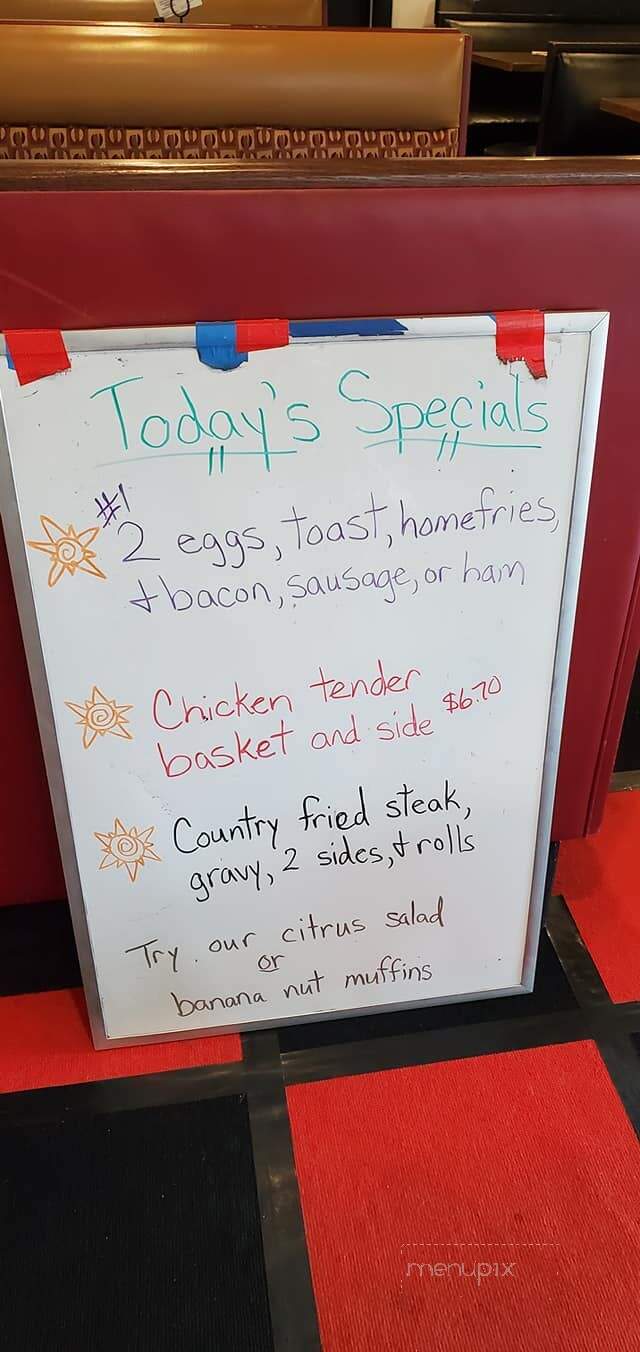 Today's Specials
#1
2 eggs, toast, homefries,
+ bacon, sausage, or ham
Chicken tender
basket and side $6.70
Country fried steak,
gravy, 2 sides, + rolls
Try our citrus salad
or
banana nut muffins
menupix